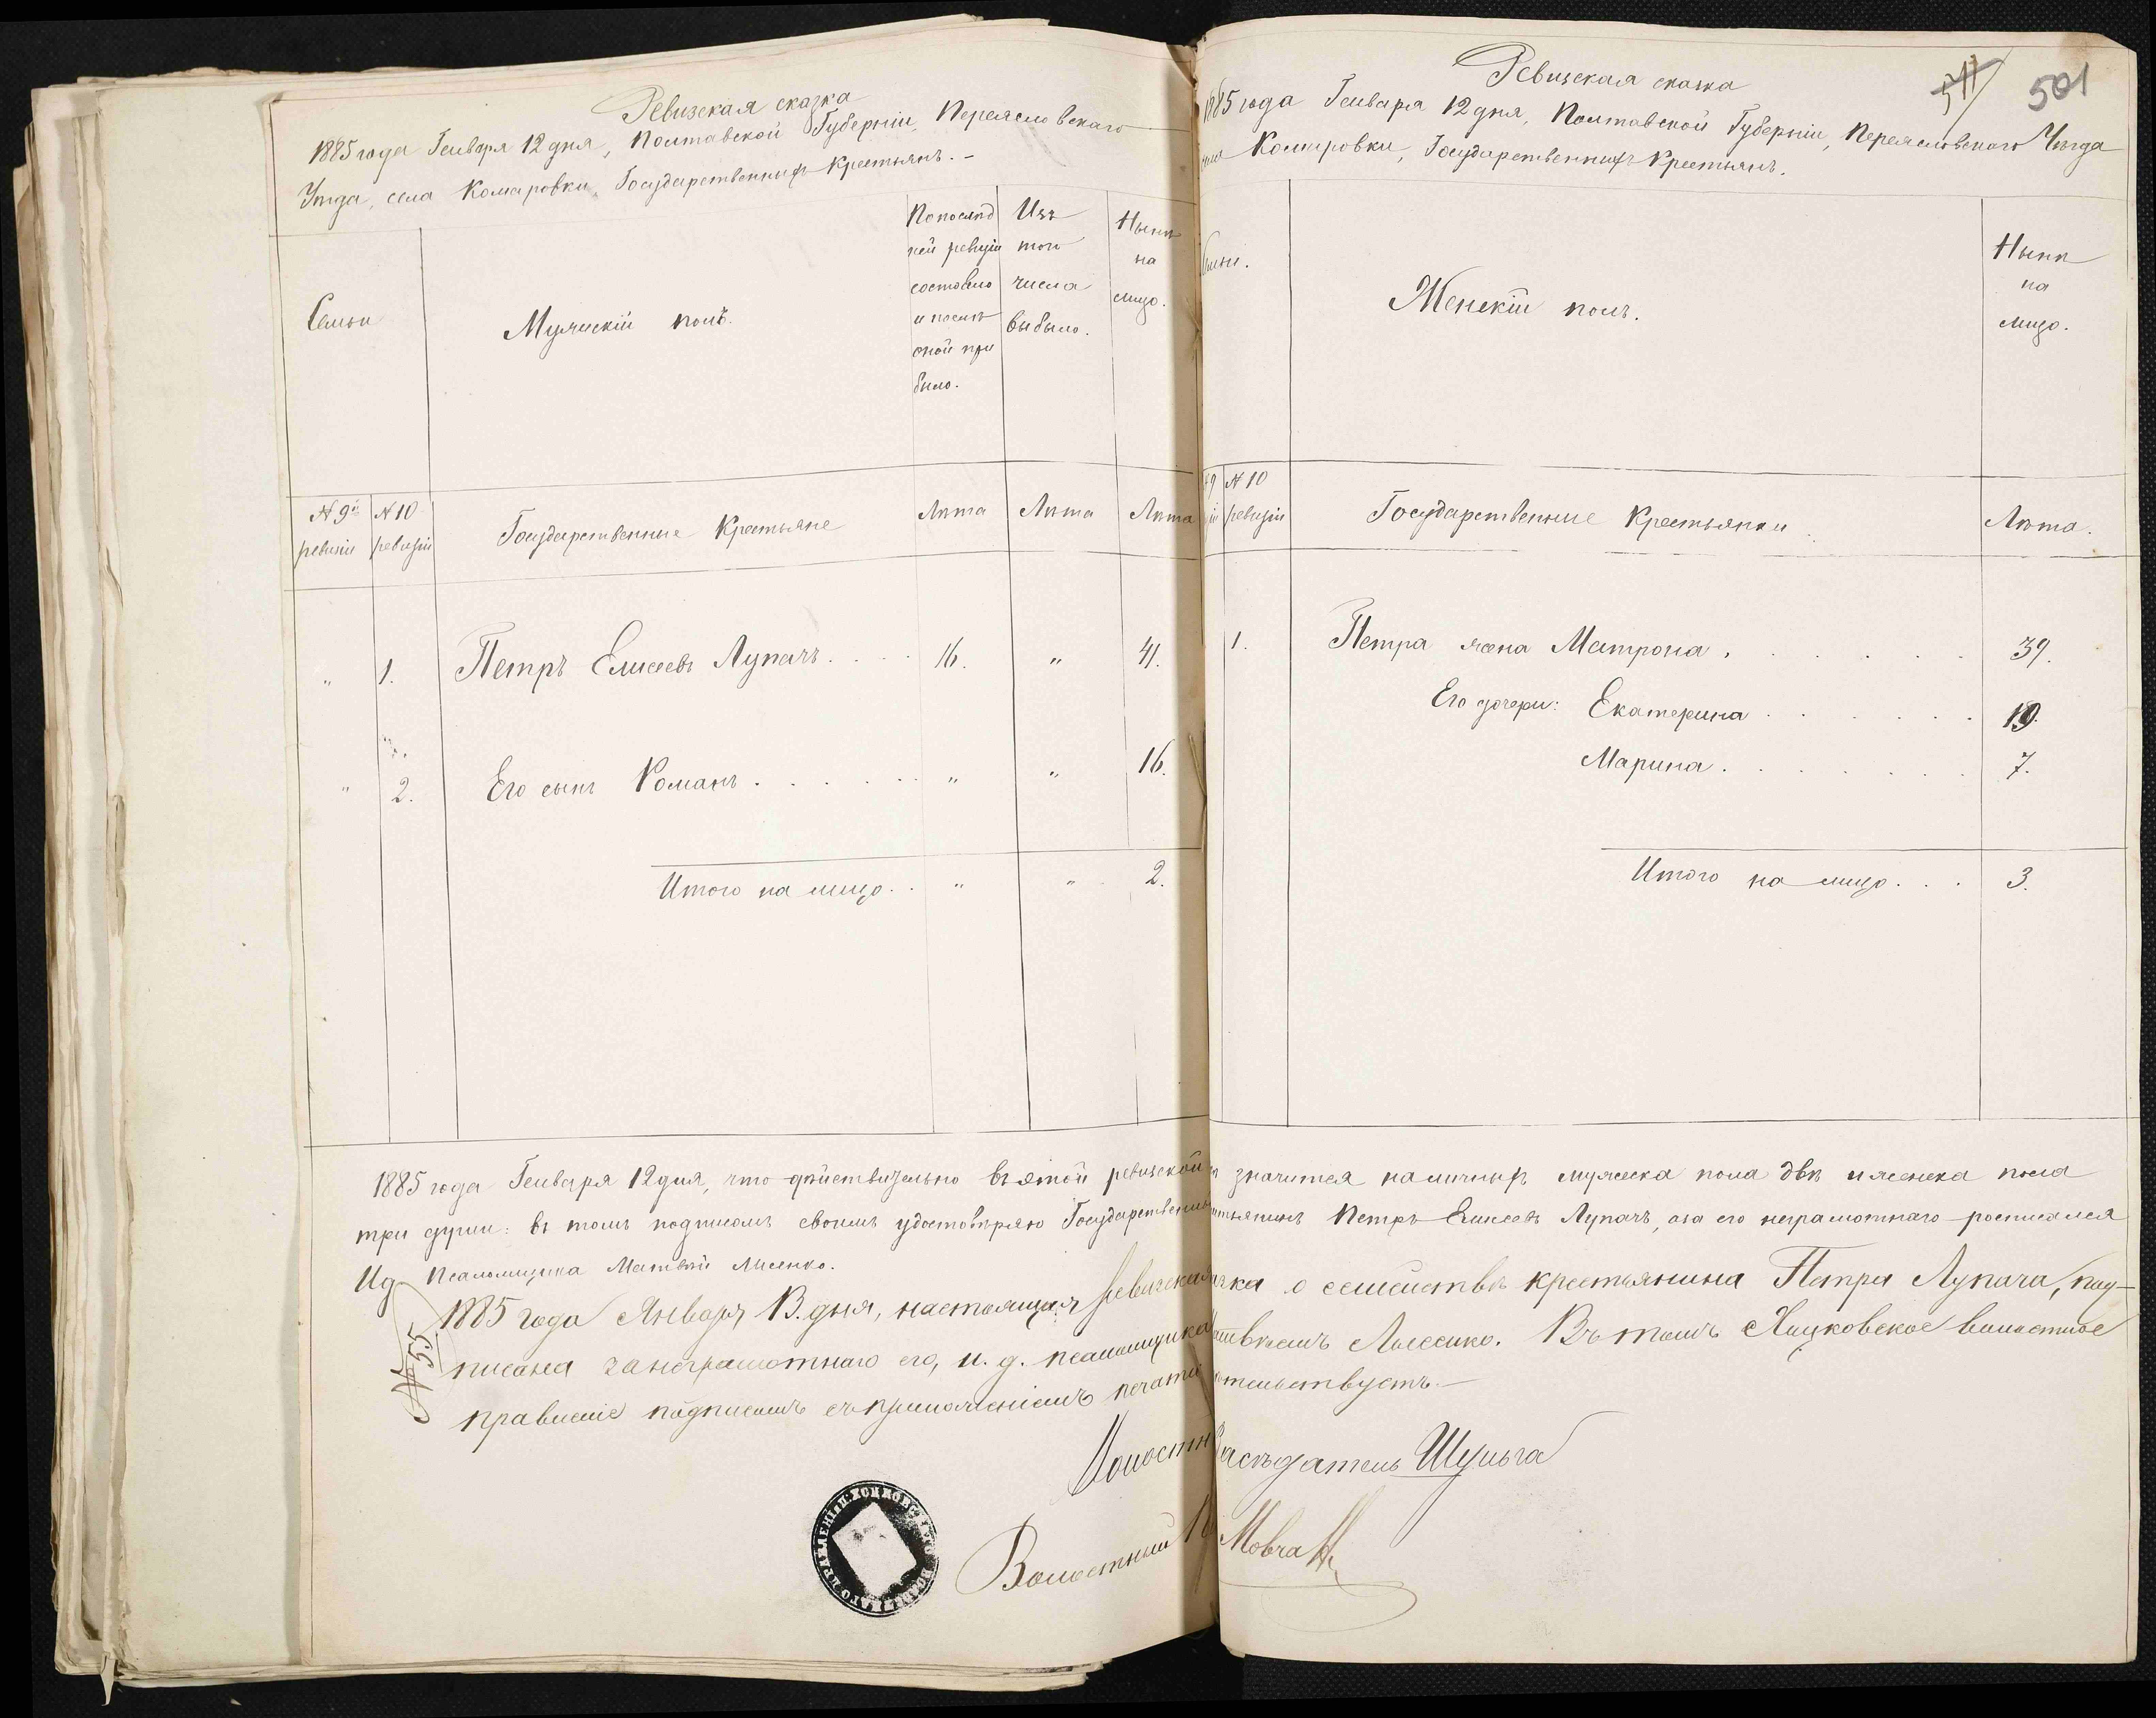 Ревизская сказка
1885 года Генваря 12 дня, Полтавской Губерніи, Переясловскаго
Уѣзда, села Комаровки, Государственныхъ Крестьянъ. –
Семьи
Мужескій полъ.
По послѣд
ней ревизіи
состояло
и послѣ
оной при
было.
Изъ
того
числа
выбыло.
Нынѣ
на
лицо.
№ 9й
ревизіи
№ 10
ревизіи
Государственные Крестьяне
Лѣта
Лѣта
Лѣта
" 1. Петръ Елисеевъ Лупачъ . . . . 16. " 41.
" 2. Его сынъ Романъ . . . . . . " " 16.
Итого на лицо . . " " 2.
541
501
Ревизская сказка
1885 года Генваря 12 дня, Полтавской Губерніи, Переясловскаго Уѣзда
Комаровки, Государственныхъ Крестьянъ.
Женскій полъ.
Нынѣ
на
лицо.
№ 10
ревизіи
Государственные Крестьянки
Лѣта.
1. Петра жена Матрона . . . . . . 39.
Его дочери: Екатерина . . . . . . 19.
Марина . . . . . . . 7.
Итого на лицо . . . 3.
1885 года Генваря 12 дня, что дѣйствительно въ этой ревизской значится наличныхъ мужеска пола двѣ и женска пола
три души: въ томъ подписомъ своимъ удостовѣряю Государственный Петръ Елисеевъ Лупачъ, а за его неграмотнаго росписался
И д Псаломщика Матвѣй Лисенко.
1885 года Января 13. дня, настоящая ревизская о семействѣ крестьянина Петра Лупача, под–
писана за неграмотнаго его, и. д. псаломщика Лисенко. Въ томъ Хоцковское волостное
правленіе подписомъ съ приложеніемъ печати
№ 55
Засѣдатель Шульга
Волостный
Мовчан
ХОЦКОВСКАГО ВОЛОСТНАГО ПРАВЛЕНІЯ